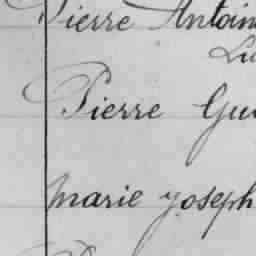 Pierre Antoin
Lu
Pierre Gu
Marie Joseph